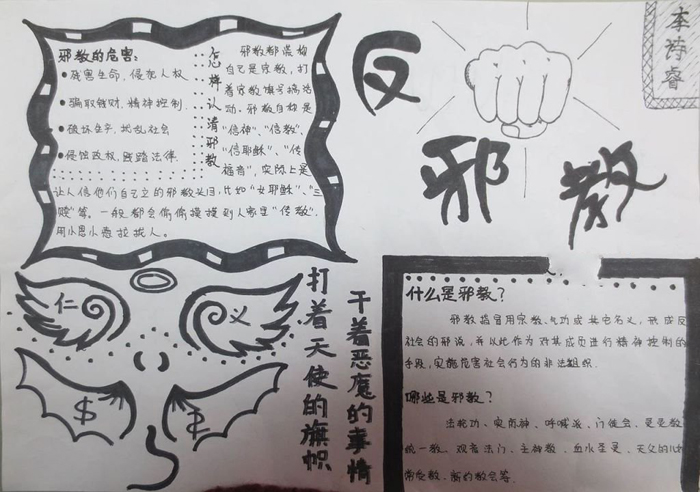 邪教的危害:
●残害生命,侵犯人权
●骗取钱财,精神控制.
●破坏生产,扰乱社会
●侵蚀政权,践踏法律.
怎样认清邪教
邪教都谎称
自己是宗教,打
着宗教旗号搞活
动.邪教自称是
"信神"、"信教"、
"信耶稣"、"传
福音",实际上是
让人信他们自己立的邪教头目,比如"女耶稣"、"三
赎"等。一般都会偷偷摸摸到人家里"传教".
用小恩小惠拉拢人。
反
邪教
李诗睿
仁
义
$
打着天使的旗帜
干着恶魔的事情
什么是邪教?
邪教指冒用宗教、气功或其它名义,形成反
社会的邪说,并以此作为对其成员进行精神控制的
手段,实施危害社会行为的非法组织.
哪些是邪教?
法轮功、实际神、呼喊派、门徒会、灵灵教
统一教、观音法门、主神教、血水圣灵、天父的儿女
常受教、新约教会等.